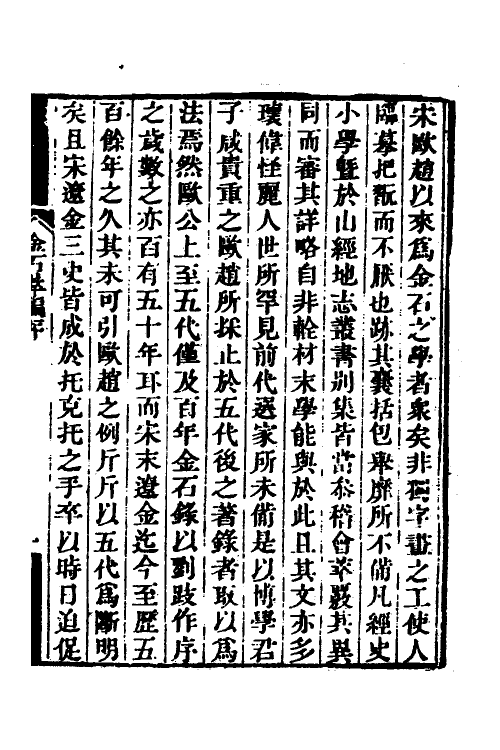 宋歐趙以來爲金石之學者衆矣非獨字畫之工使人
臨摹把翫而不厭也跡其囊括包舉靡所不備凡經史
小學暨於山經地志叢書別集皆當參稽會萃覈其異
同而審其詳略自非輇材末學能與於此且其文亦多
瓌偉怪麗人世所罕見前代選家所未備是以博學君
子咸貴重之歐趙所採止於五代後之著錄者取以爲
法焉然歐公上至五代僅及百年金石錄以劉跂作序
之歲數之亦百有五十年耳而宋末遼金迄今至歷五
百餘年之久其未可引歐趙之例斤斤以五代爲斷明
矣且宋遼金三史皆成於托克托之手卒以時日迫促
金石萃編序